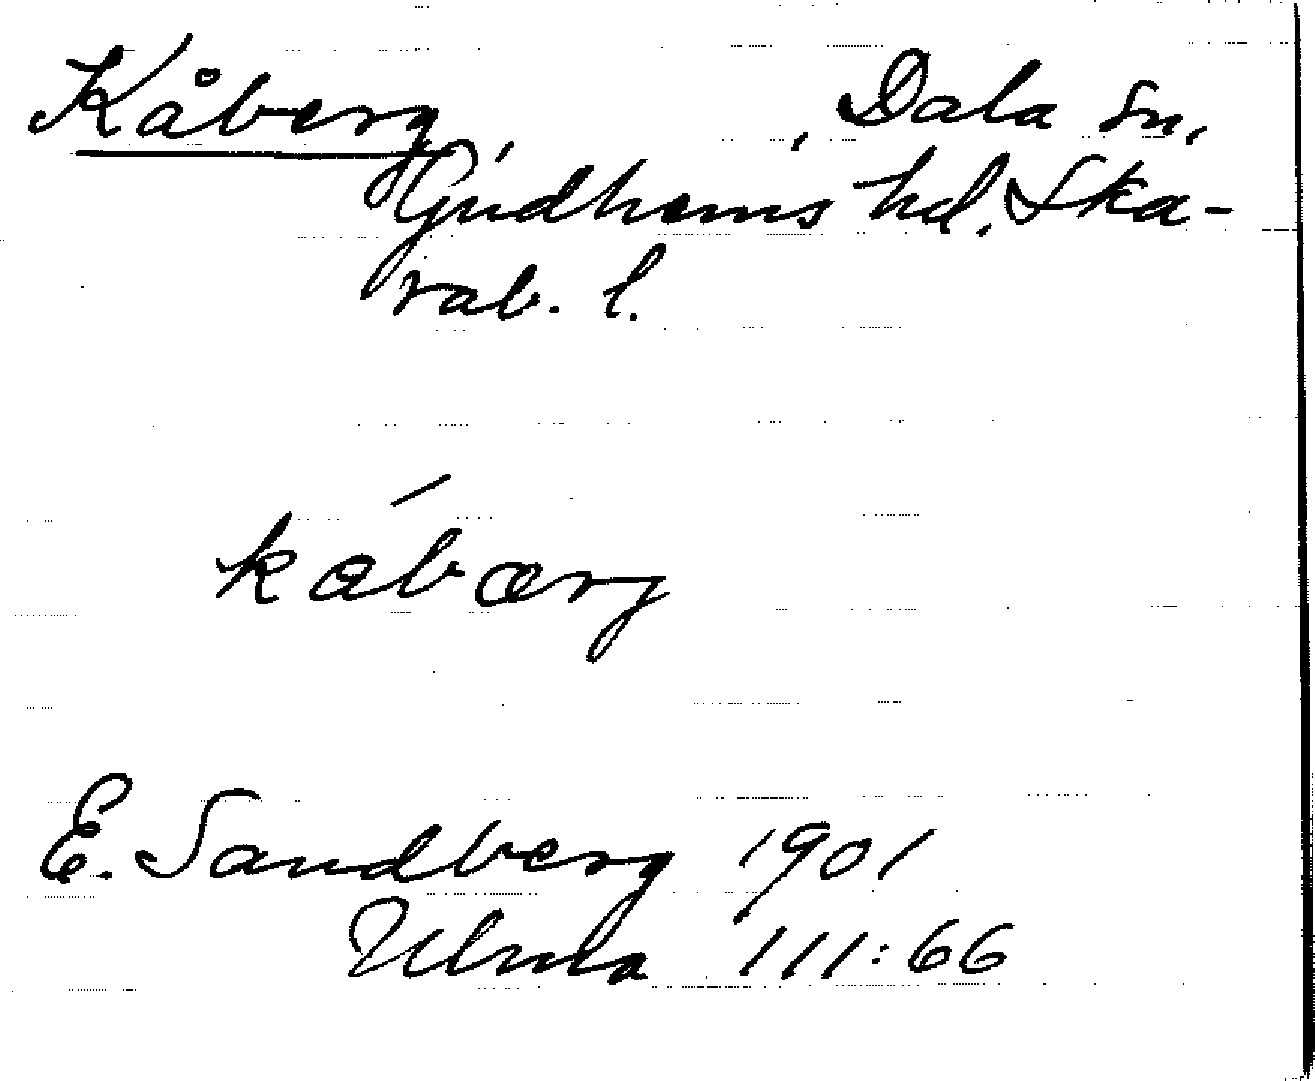 Kåberg, Dala sn,
Gudhems hd. Ska-
rab. l.
kábærj
E. Sandberg 1901
Ulma 111:66